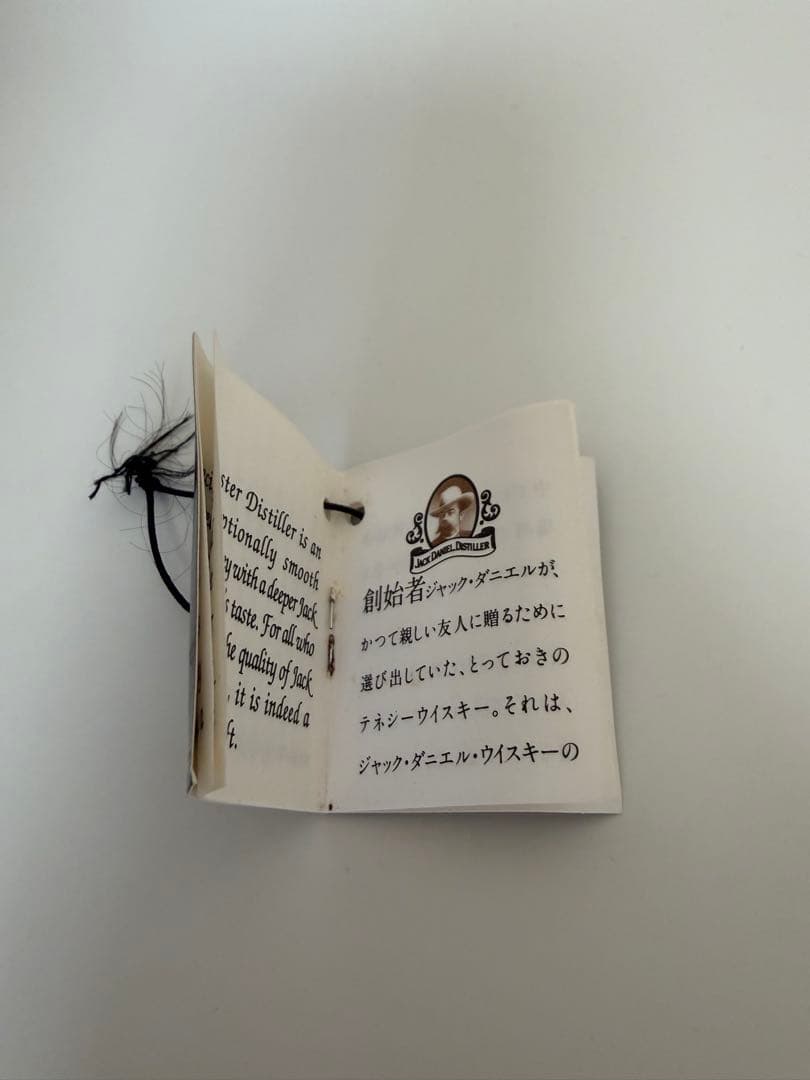 ster Distiller is an
ptionally smooth
y with a deeper Jack
s taste. For all who
he quality of Jack
, it is indeed a
ft.
JACK DANIEL, DISTILLER
創始者ジャック・ダニエルが、
かつて親しい友人に贈るために
選び出していた、とっておきの
テネシーウイスキー。それは、
ジャック・ダニエル・ウイスキーの